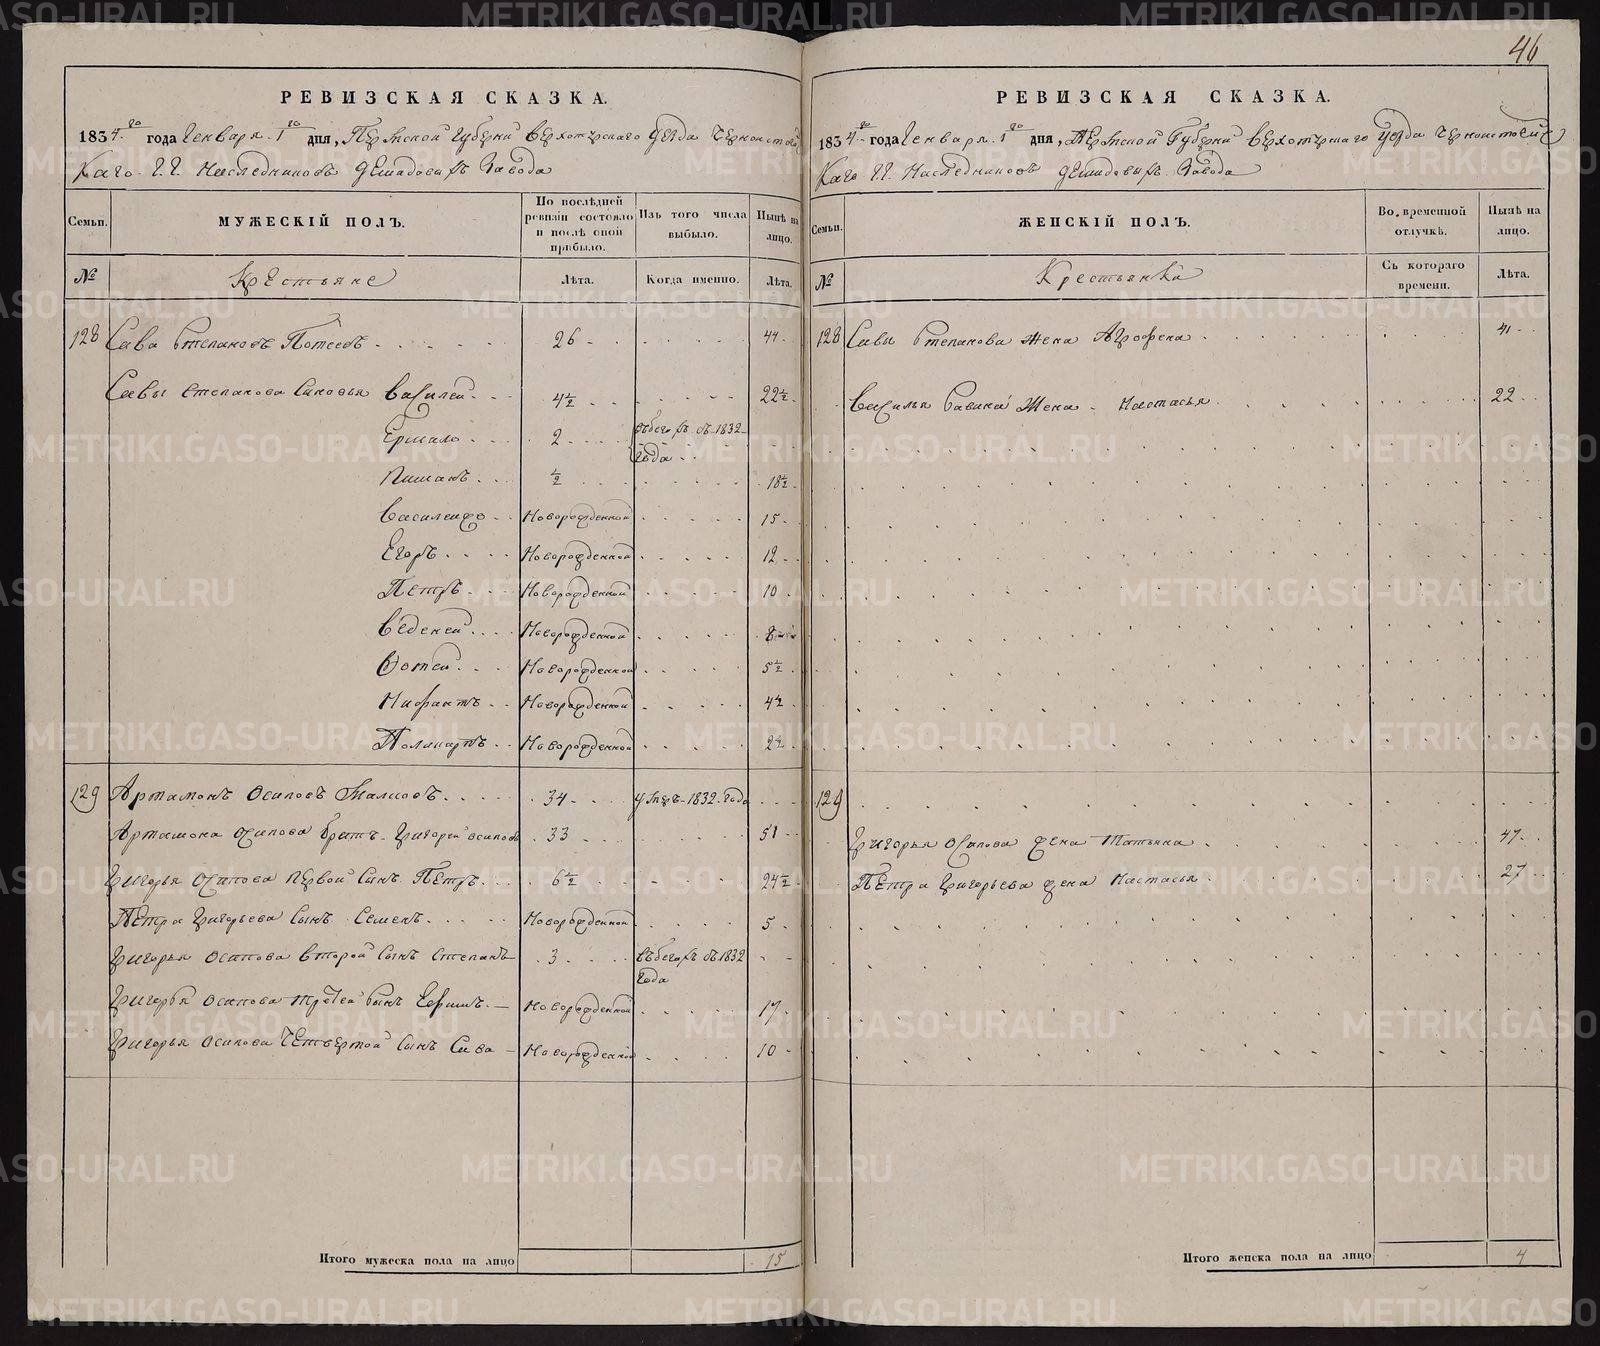 46
РЕВИЗСКАЯ СКАЗКА.
1834 го года Генваря 1 го дня, Пермской Губернии Верхотурскаго уезда Черноисточин
скаго Г.Г. Наследниковъ Демидовыхъ завода
Семьи.
МУЖЕСКІЙ ПОЛЪ.
По послѣдней ревизіи состояло и послѣ оной прибыло.
Изъ того числа выбыло.
Нынѣ на лицо.
№
Крестьяне
Лѣта.
Когда именно.
Лѣта.
128 Сава Степановъ 26 44
Савы Степанова сыновья Василей 4½ 22½
Ермало 2 въ бегахъ съ 1832
года
Пиманъ ½ 18½
Новорожденной 15
Егоръ Новорожденной 12
Петръ Новорожденной 10
Веденей Новорожденной 8
Фотей Новорожденной 5½
Нифантъ Новорожденной 4½
Поликарпъ Новорожденной 2½
129 Артамонъ Осиповъ 34 умеръ 1832 года
Артамона Осипова братъ Григорей Осиповъ 33 51
Григорья Осипова первой сынъ Петръ 6½ 24½
Петра Григорьева сынъ Семенъ Новорожденной 5
Григорья Осипова второй сынъ Степанъ 3 въ бегахъ съ 1832
года
Григорья Осипова третей сынъ Ефимъ Новорожденной 17
Григорья Осипова четвертой сынъ Сава Новорожденной 10
Итого мужеска пола на лицо 15
РЕВИЗСКАЯ СКАЗКА.
1834 го года Генваря 1 го дня, Пермской Губернии Верхотурскаго уезда Черноисточин
скаго Г.Г. Наследниковъ Демидовыхъ завода
Семьи.
ЖЕНСКІЙ ПОЛЪ.
Во временной отлучкѣ.
Нынѣ на лицо.
№
Крестьянки
Съ котораго времени.
Лѣта.
128 Савы Степанова жена Агрофена 41
Василья Савина жена Настасья 22
129
Григорья Осипова жена Татьяна 47
Петра Григорьева жена Настасья 27
Итого женска пола на лицо 4
METRIKI.GASO-URAL.RU